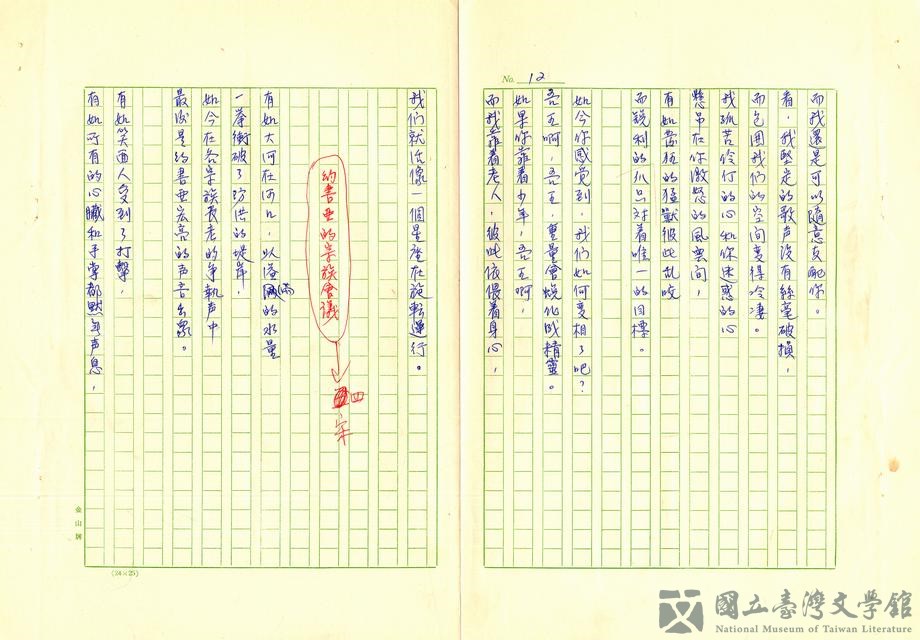 No. 12
而我還是可以隨意支配你。
看,我堅定的歌声沒有絲毫破損,
而包圍我們的空间变得冷凄。
我孤苦伶仃的心和你迷惑的心
懸吊在你激怒的風雲间,
有如當狂的猛獸彼此乱咬
而銳利的爪只对着唯一的目標。
如今你感觉到,我们如何变相了吧?
吾互啊,吾互,重量會蛻化成精靈。
如果你靠着少年,吾互啊,
而我靠着老人,彼此依偎着身心,
我们就活像一個星座在旋転運行。
約書亞的宗族會議
四
宋
有如大河在河口,以溢滿的水量
一举衝破了防洪的堤岸,
如今在各宗族長老的争執声中
最後是約書亞宏亮的声音出衆。
有如笑面人受到了打擊
有如所有的心臟和手掌都默無声息,
金山牌
(24×25)
國立臺灣文學館
National Museum of Taiwan Literature